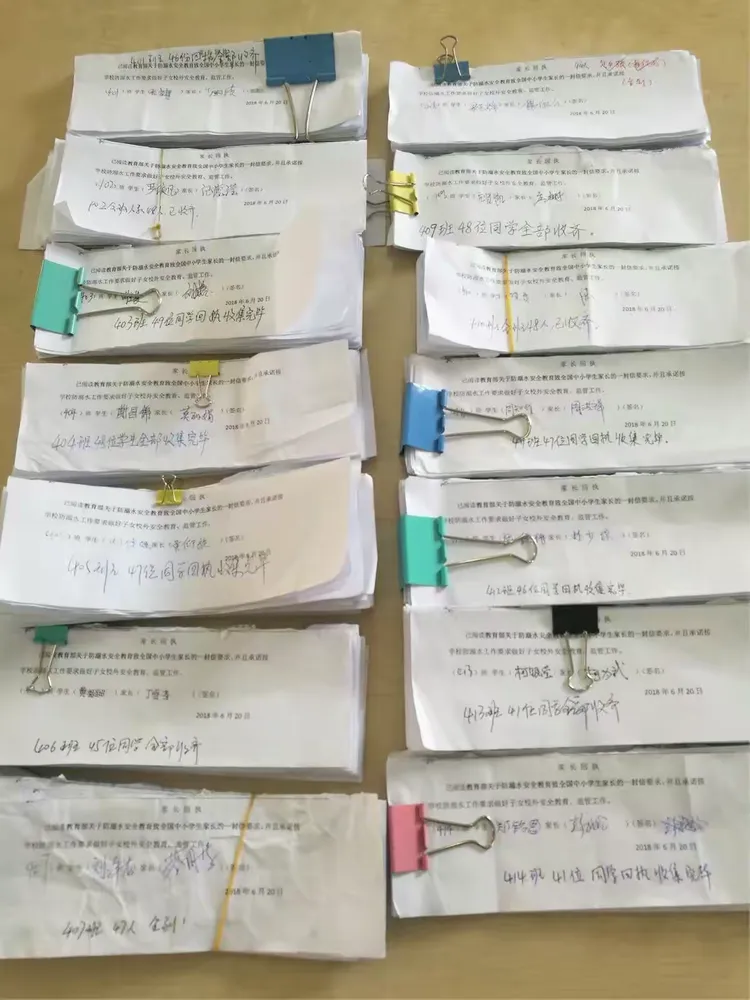 401班 46份回执全部收齐
已阅读教育部关于防溺水安全教育致全国中小学生家长的一封信要求，并且承诺按
学校防溺水工作要求做好子女校外安全教育、监管工作。
401 班 学生 家长 (签名)
2018 年 6 月 20 日
家长回执
已阅读教育部关于防溺水安全教育致全国中小学生家长的一封信要求，并且承诺按
学校防溺水工作要求做好子女校外安全教育、监管工作。
402 班 学生 家长 (签名)
2018 年 6 月 20 日
402 已收齐.
家长回执
已阅读教育部关于防溺水安全教育致全国中小学生家长的一封信要求，并且承诺按
学校防溺水工作要求做好子女校外安全教育、监管工作。
403 班 学生 家长 (签名)
2018 年 6 月 20 日
403班 49位同学回执收集完毕
家长
已阅读教育部关于防溺水安全教育致全国中小学生家长的一封信要求，并且承诺按
学校防溺水工作要求做好子女校外安全教育、监管工作。
404 班 学生 家长 (签名)
2018 年 6 月 20 日
404班 48位学生全部收集完毕
家长回执
已阅读教育部关于防溺水安全教育致全国中小学生家长的一封信要求，并且承诺按
学校防溺水工作要求做好子女校外安全教育、监管工作。
班 学生 家长 (签名)
2018 年 6 月 20 日
405班 47位同学回执收集完毕
家长回执
已阅读教育部关于防溺水安全教育致全国中小学生家长的一封信要求，并且承诺按
学校防溺水工作要求做好子女校外安全教育、监管工作。
班 学生 家长 (签名)
2018 年 6 月 20 日
406班 45位同学全部收齐
家长回执
已阅读教育部关于防溺水安全教育致全国中小学生家长的一封信要求，并且承诺按
学校防溺水工作要求做好子女校外安全教育、监管工作。
班 学生 家长 (签名)
2018 年 6 月 20 日
407班 47人 全到!
家长回执
已阅读教育部关于防溺水安全教育致全国中小学生家长的一封信要求，并且承诺按
学校防溺水工作要求做好子女校外安全教育、监管工作。
(全到)
班 学生 家长 (签名)
2018 年 6 月 20 日
家长回执
已阅读教育部关于防溺水安全教育致全国中小学生家长的一封信要求，并且承诺按
学校防溺水工作要求做好子女校外安全教育、监管工作。
班 学生 家长 (签名)
2018 年 6 月 20 日
409班 48位同学全部收齐。
家长回执
已阅读教育部关于防溺水安全教育致全国中小学生家长的一封信要求，并且承诺按
学校防溺水工作要求做好子女校外安全教育、监管工作。
班 学生 家长 (签名)
2018 年 6 月 20 日
48人 已收齐.
家长回执
已阅读教育部关于防溺水安全教育致全国中小学生家长的一封信要求，并且承诺按
学校防溺水工作要求做好子女校外安全教育、监管工作。
班 学生 家长 (签名)
2018 年 6 月 20 日
班 47位同学回执收集完毕.
家长回执
已阅读教育部关于防溺水安全教育致全国中小学生家长的一封信要求，并且承诺按
学校防溺水工作要求做好子女校外安全教育、监管工作。
(签名)
2018 年 6 月 20 日
412班 46位同学回执收集完毕
家长回执
已阅读教育部关于防溺水安全教 致全国中小学生家长的一封信要求，并且承诺按
学校防溺水工作要求做好子女校外安全教育、监管工作。
413 班 学生 (签名)
2018 年 6 月 20 日
413班 41位同学全部收齐
家长回执
已阅读教育部关于防溺水安全教育致全国中小学生家长的一封信要求，并且承诺按
学校防溺水工作要求做好子女校外安全教育、监管工作。
414 家长 (签名)
2018 年 6 月 20 日
414班 41位同学回执收集完毕